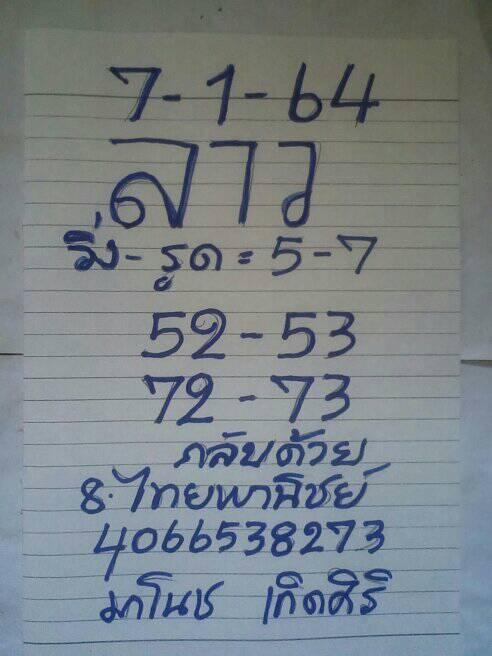 7-1-64
ลาว
วิ่ง-รูด=5-7
52-53
72-73
กลับด้วย
ธ.ไทยพานิชย์
4066538273
มาโนช เกิดศิริ